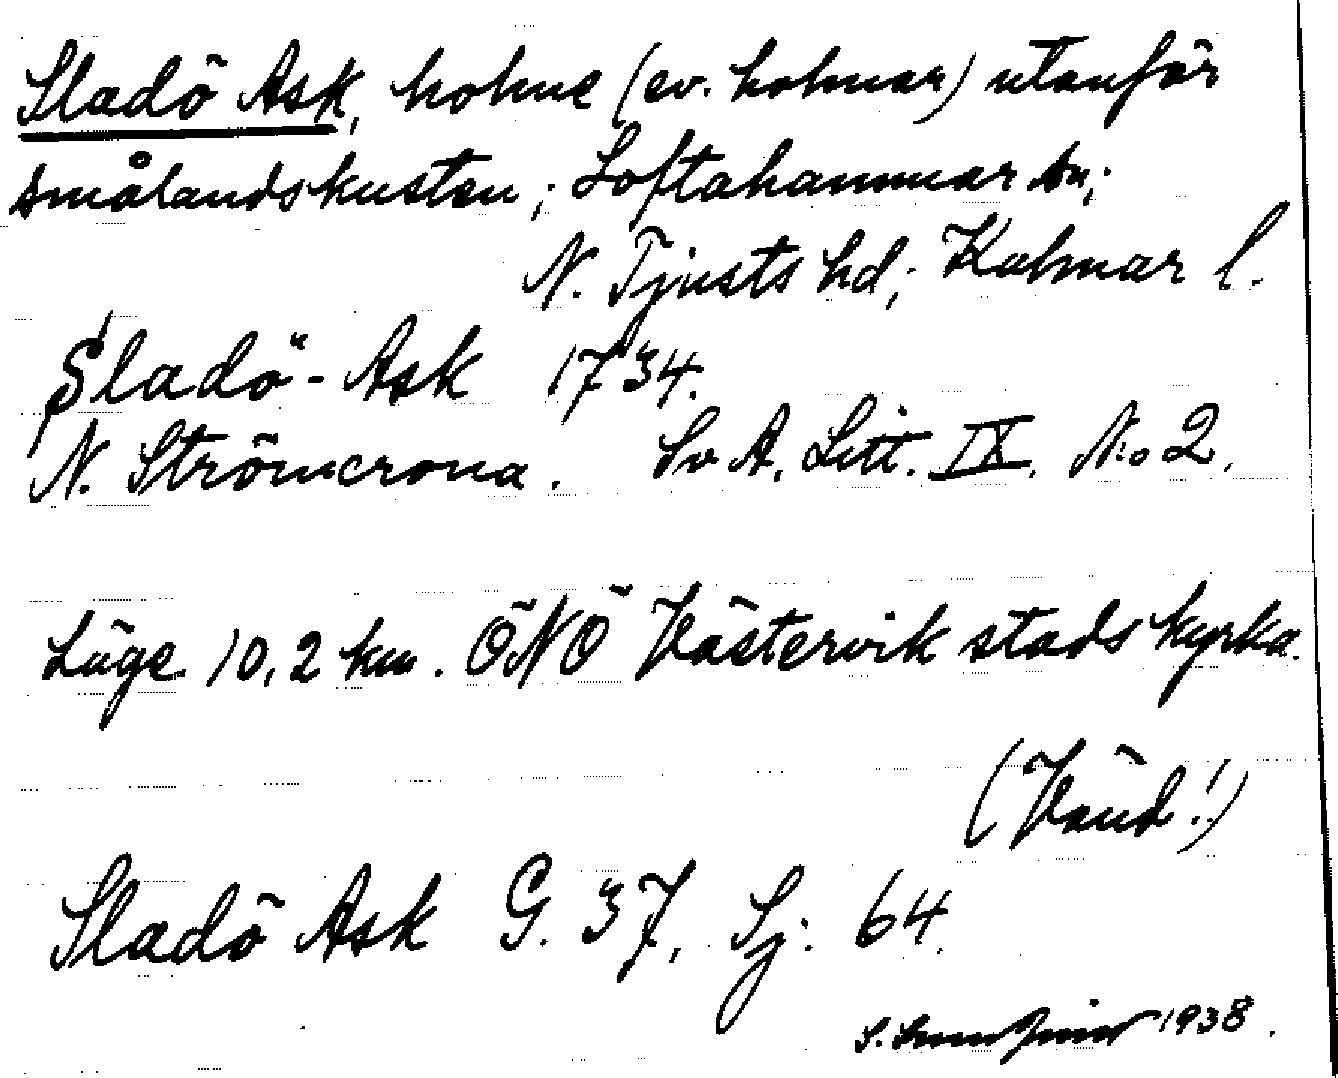 Sladö Ask, holme (ev. holmar) utanför
smålandskusten; Loftahammar sn;
N. Tjusts hd; Kalmar l.
Sladö-Ask 1734.
N. Strömcrona. Sv A. Litt. IX. No 2.
Läge 10,2 km. ÖNÖ Västervik stads kyrka.
(Vänd!)
Sladö Ask G. 37, Sj: 64.
S. 1938.